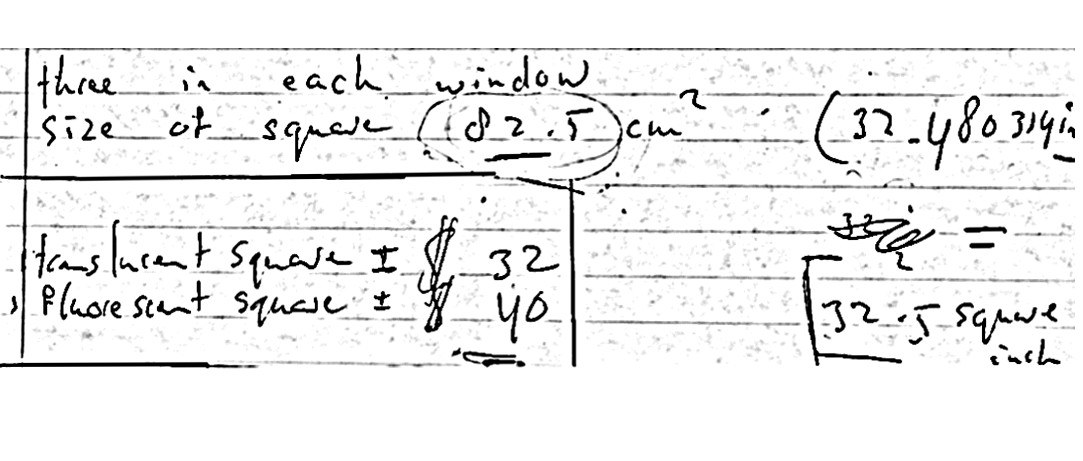 three in each window
size of square (82.5) cm² (32.480314in
translucent square ± $ 32 =
Fluorescent square ± $ 40 [32.5 square
inch